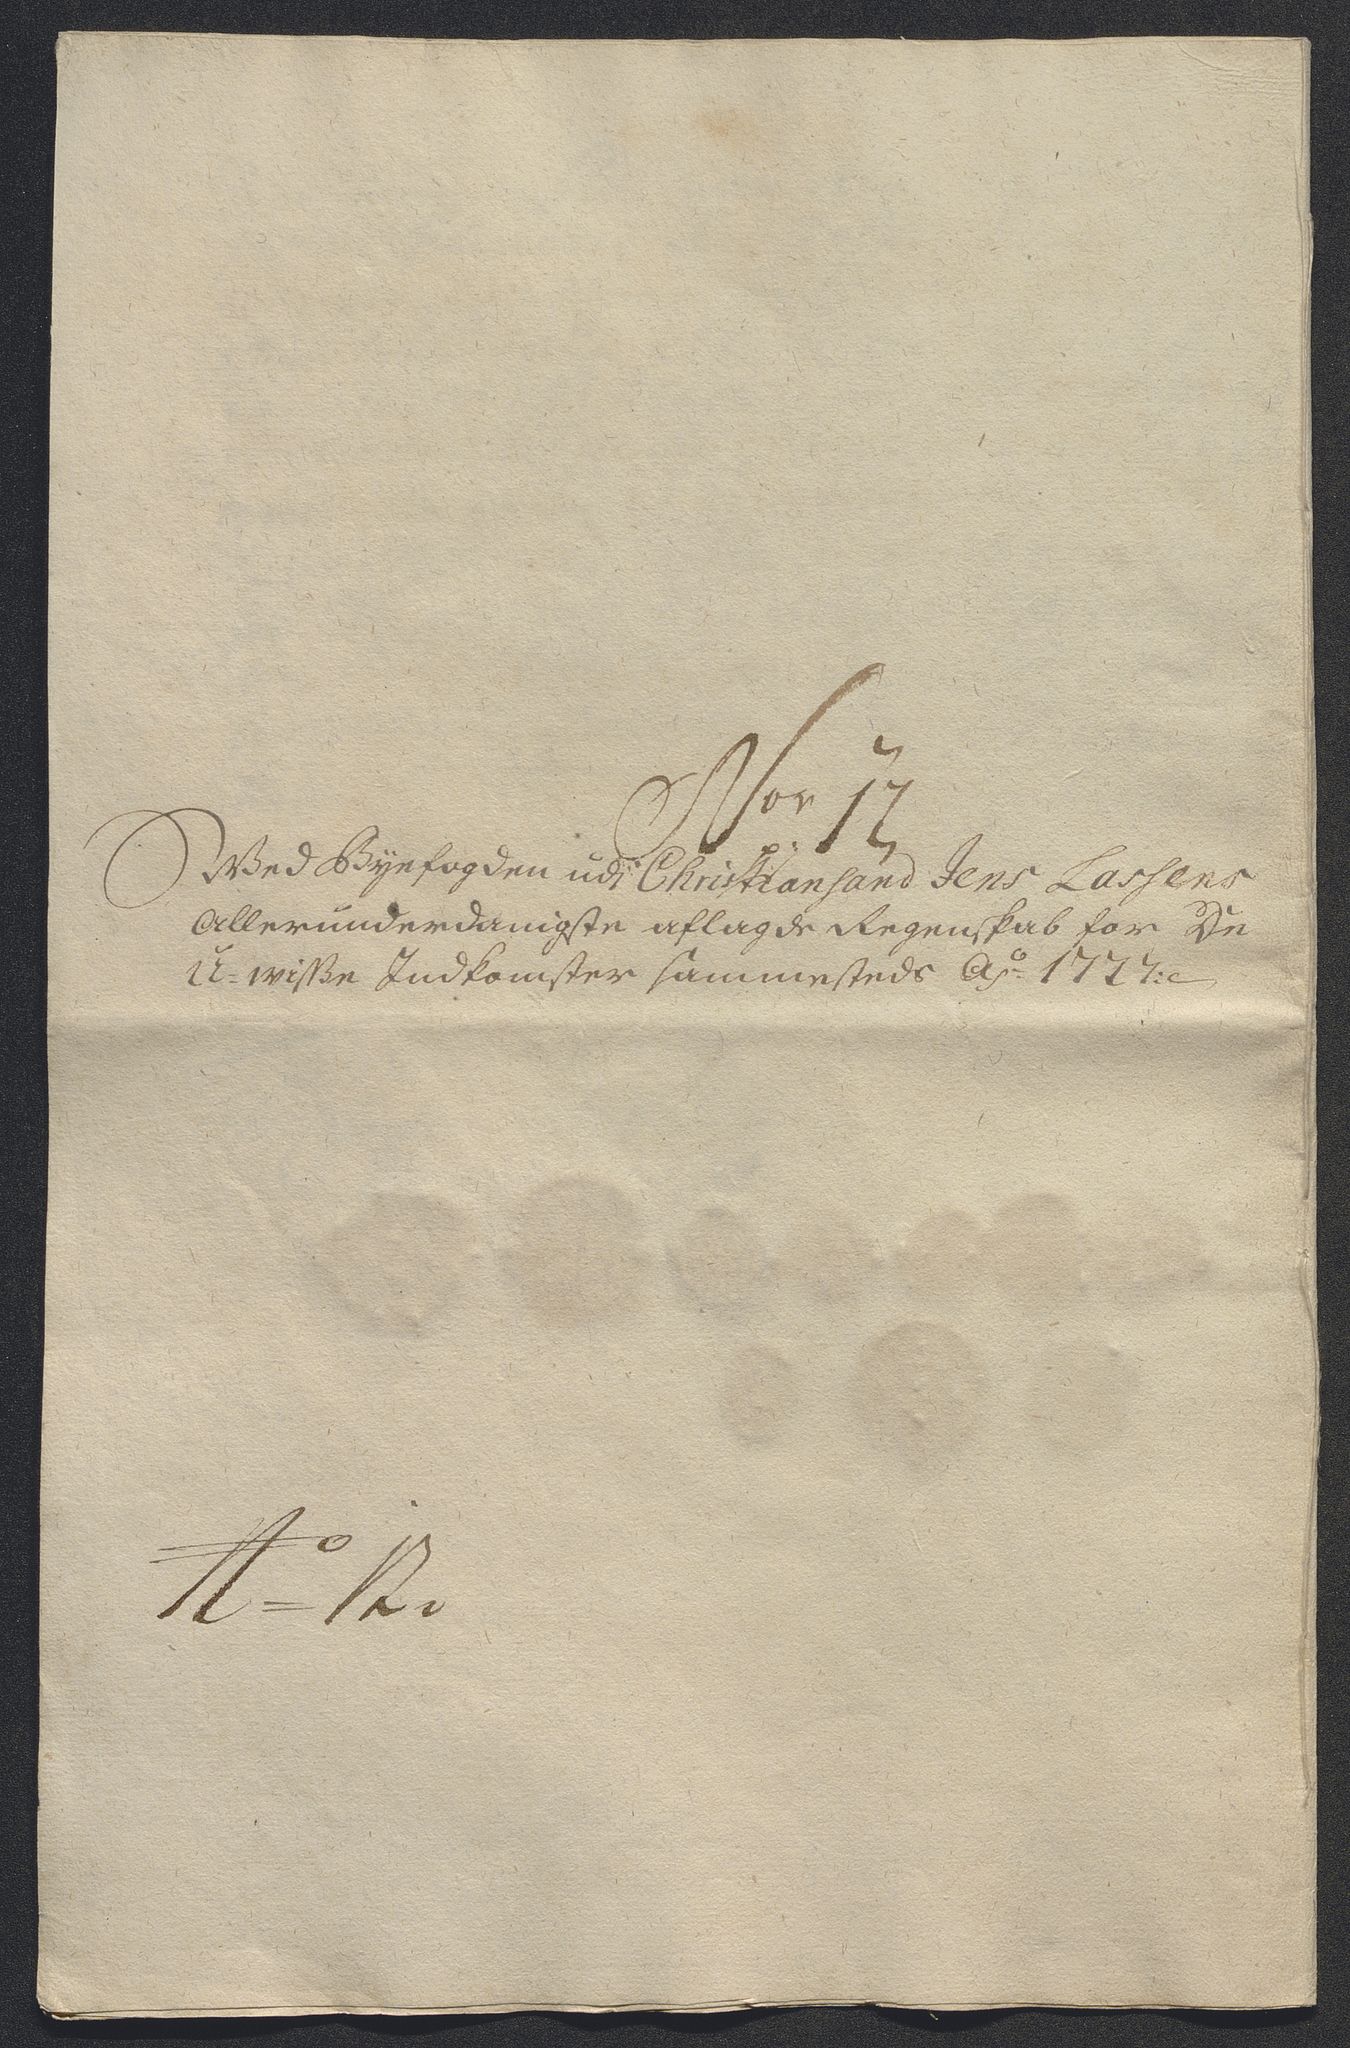 Nor 12
Ved Byefogden udi Christiansand Jens Lassens
Allerunderdanigste aflagde Regenskab for De
U-wisse Indkomster sammesteds Aō
No= 12.